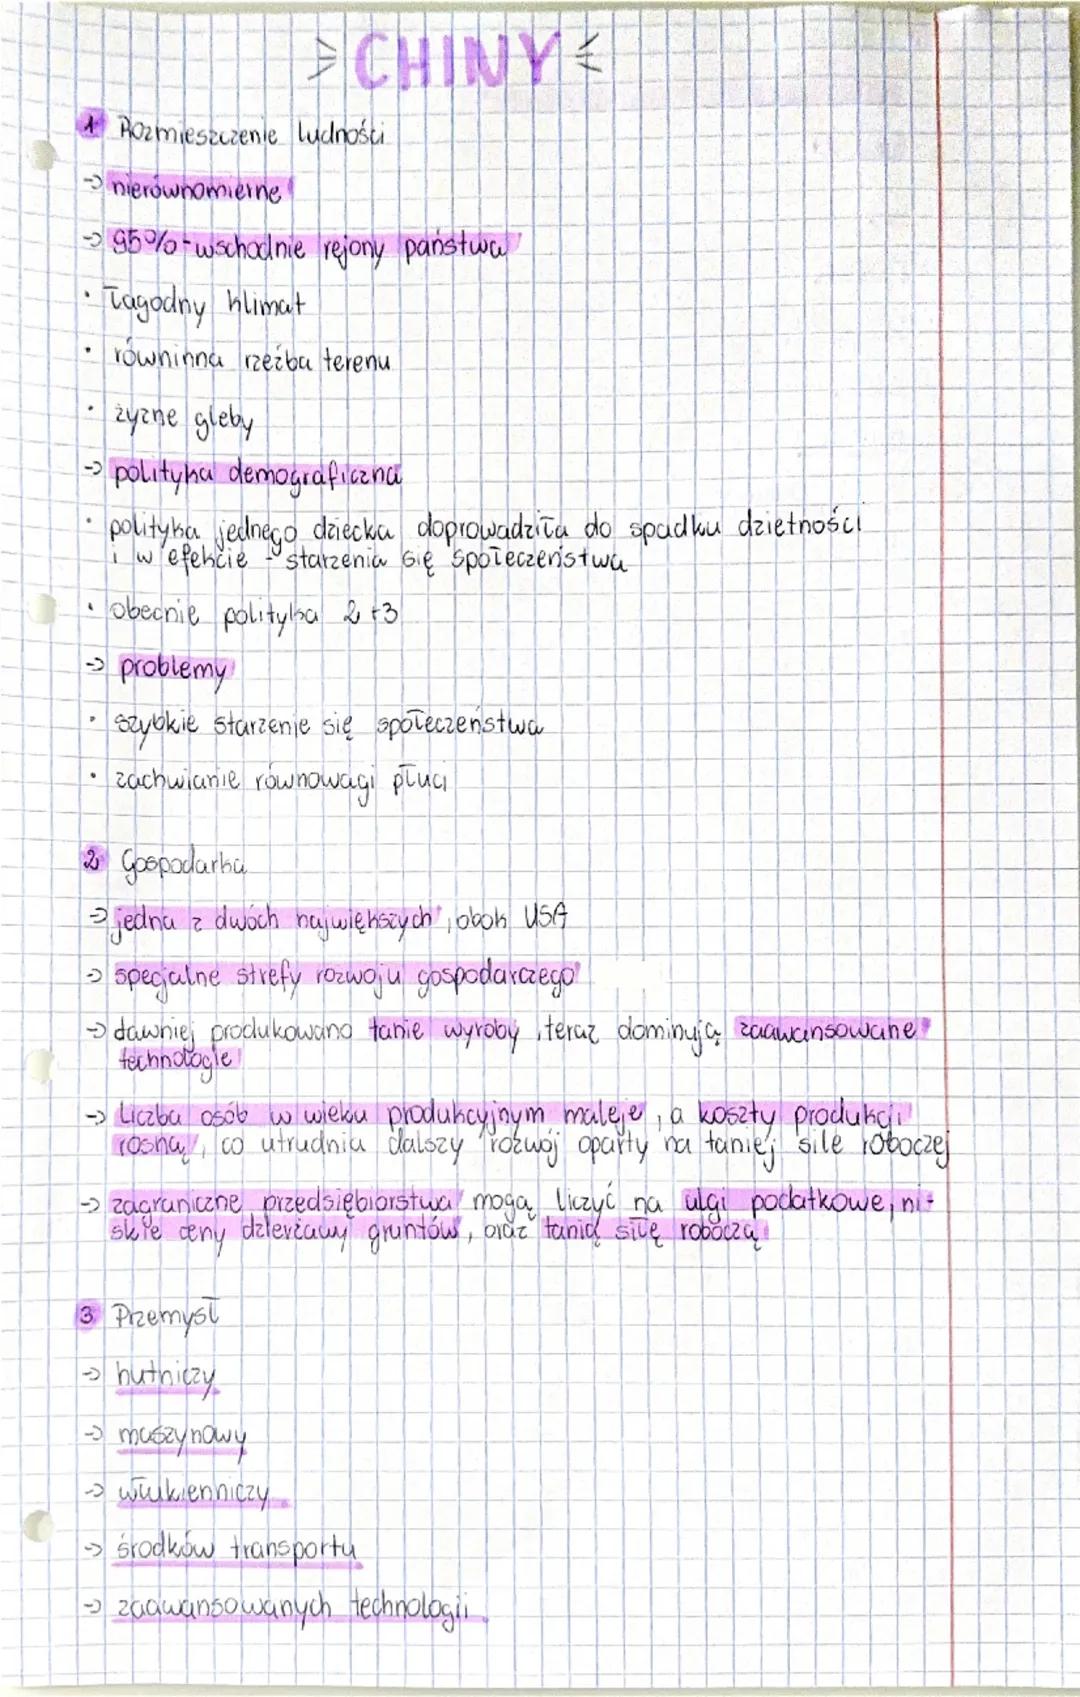 CHINY
1 Rozmieszczenie ludności
→ nierównomierne
→ 95% - wschodnie rejony państwa
• łagodny klimat
• równinna rzeźba terenu
• żyzne gleby
→ polityka demograficzna
• polityka jednego dziecka doprowadziła do spadku dzietności
i w efekcie - starzenia się społeczeństwa
• obecnie polityka 2+3
→ problemy
• szybkie starzenie się społeczeństwa
• zachwianie równowagi płuci
2 Gospodarka
→ jedna z dwóch największych, obok USA
→ specjalne strefy rozwoju gospodarczego
→ dawniej produkowano tanie wyroby, teraz dominują zaawansowane
technologie
→ Liczba osób w wieku produkcyjnym maleje, a koszty produkcji
rosną, co utrudnia dalszy rozwój oparty na taniej sile roboczej
→ zagraniczne przedsiębiorstwa mogą liczyć na ulgi podatkowe, ni-
skie ceny dzierżawy gruntów, oraz tanią siłę roboczą
3 Przemysł
→ hutniczy
→ maszynowy
→ włukienniczy
→ środków transportu
→ zaawansowanych technologii